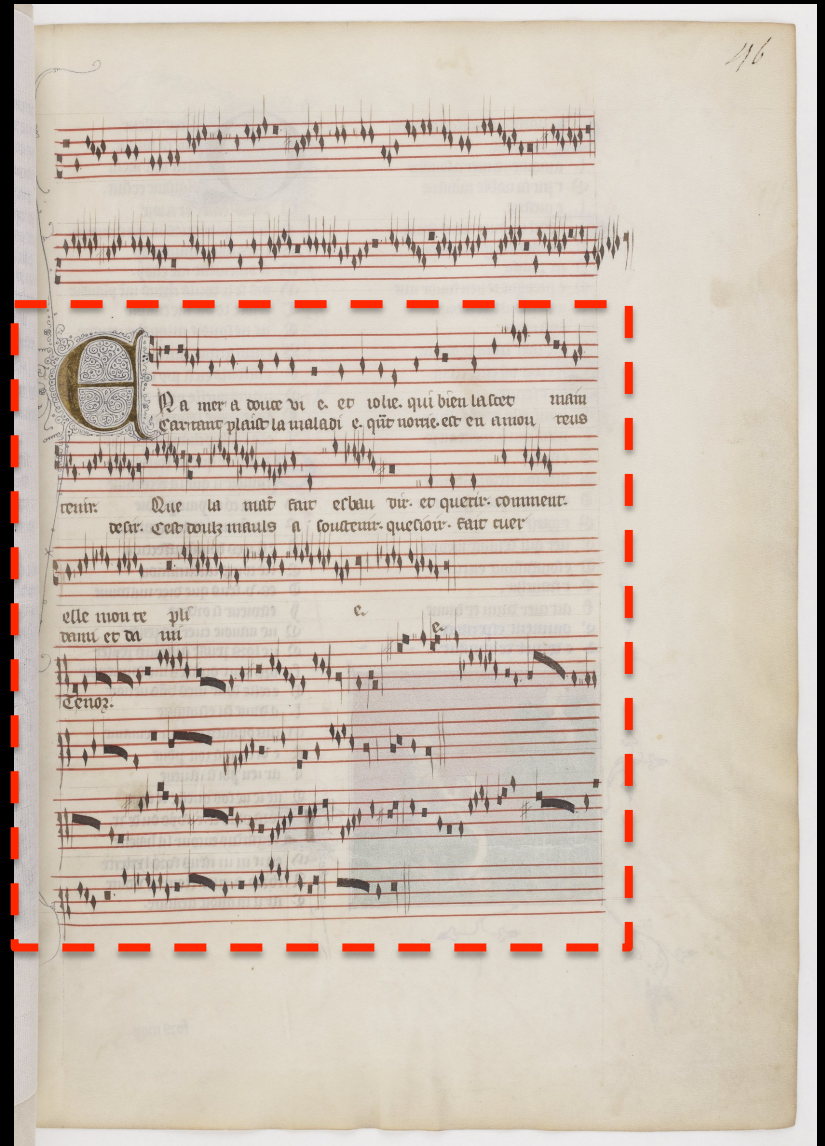 46
EN a mer a douce vi e. et iolie. qui bien la scet main
Car tant plaist la maladi e. qñt norrie. est en amou reus
tenir. Que la mãt fait esbau dir. et querir. comment.
desir. Cest doulz mauls a soustenir. quesioir. fait cuer
elle mon te pli e.
dami et da mi e.
Tenor.